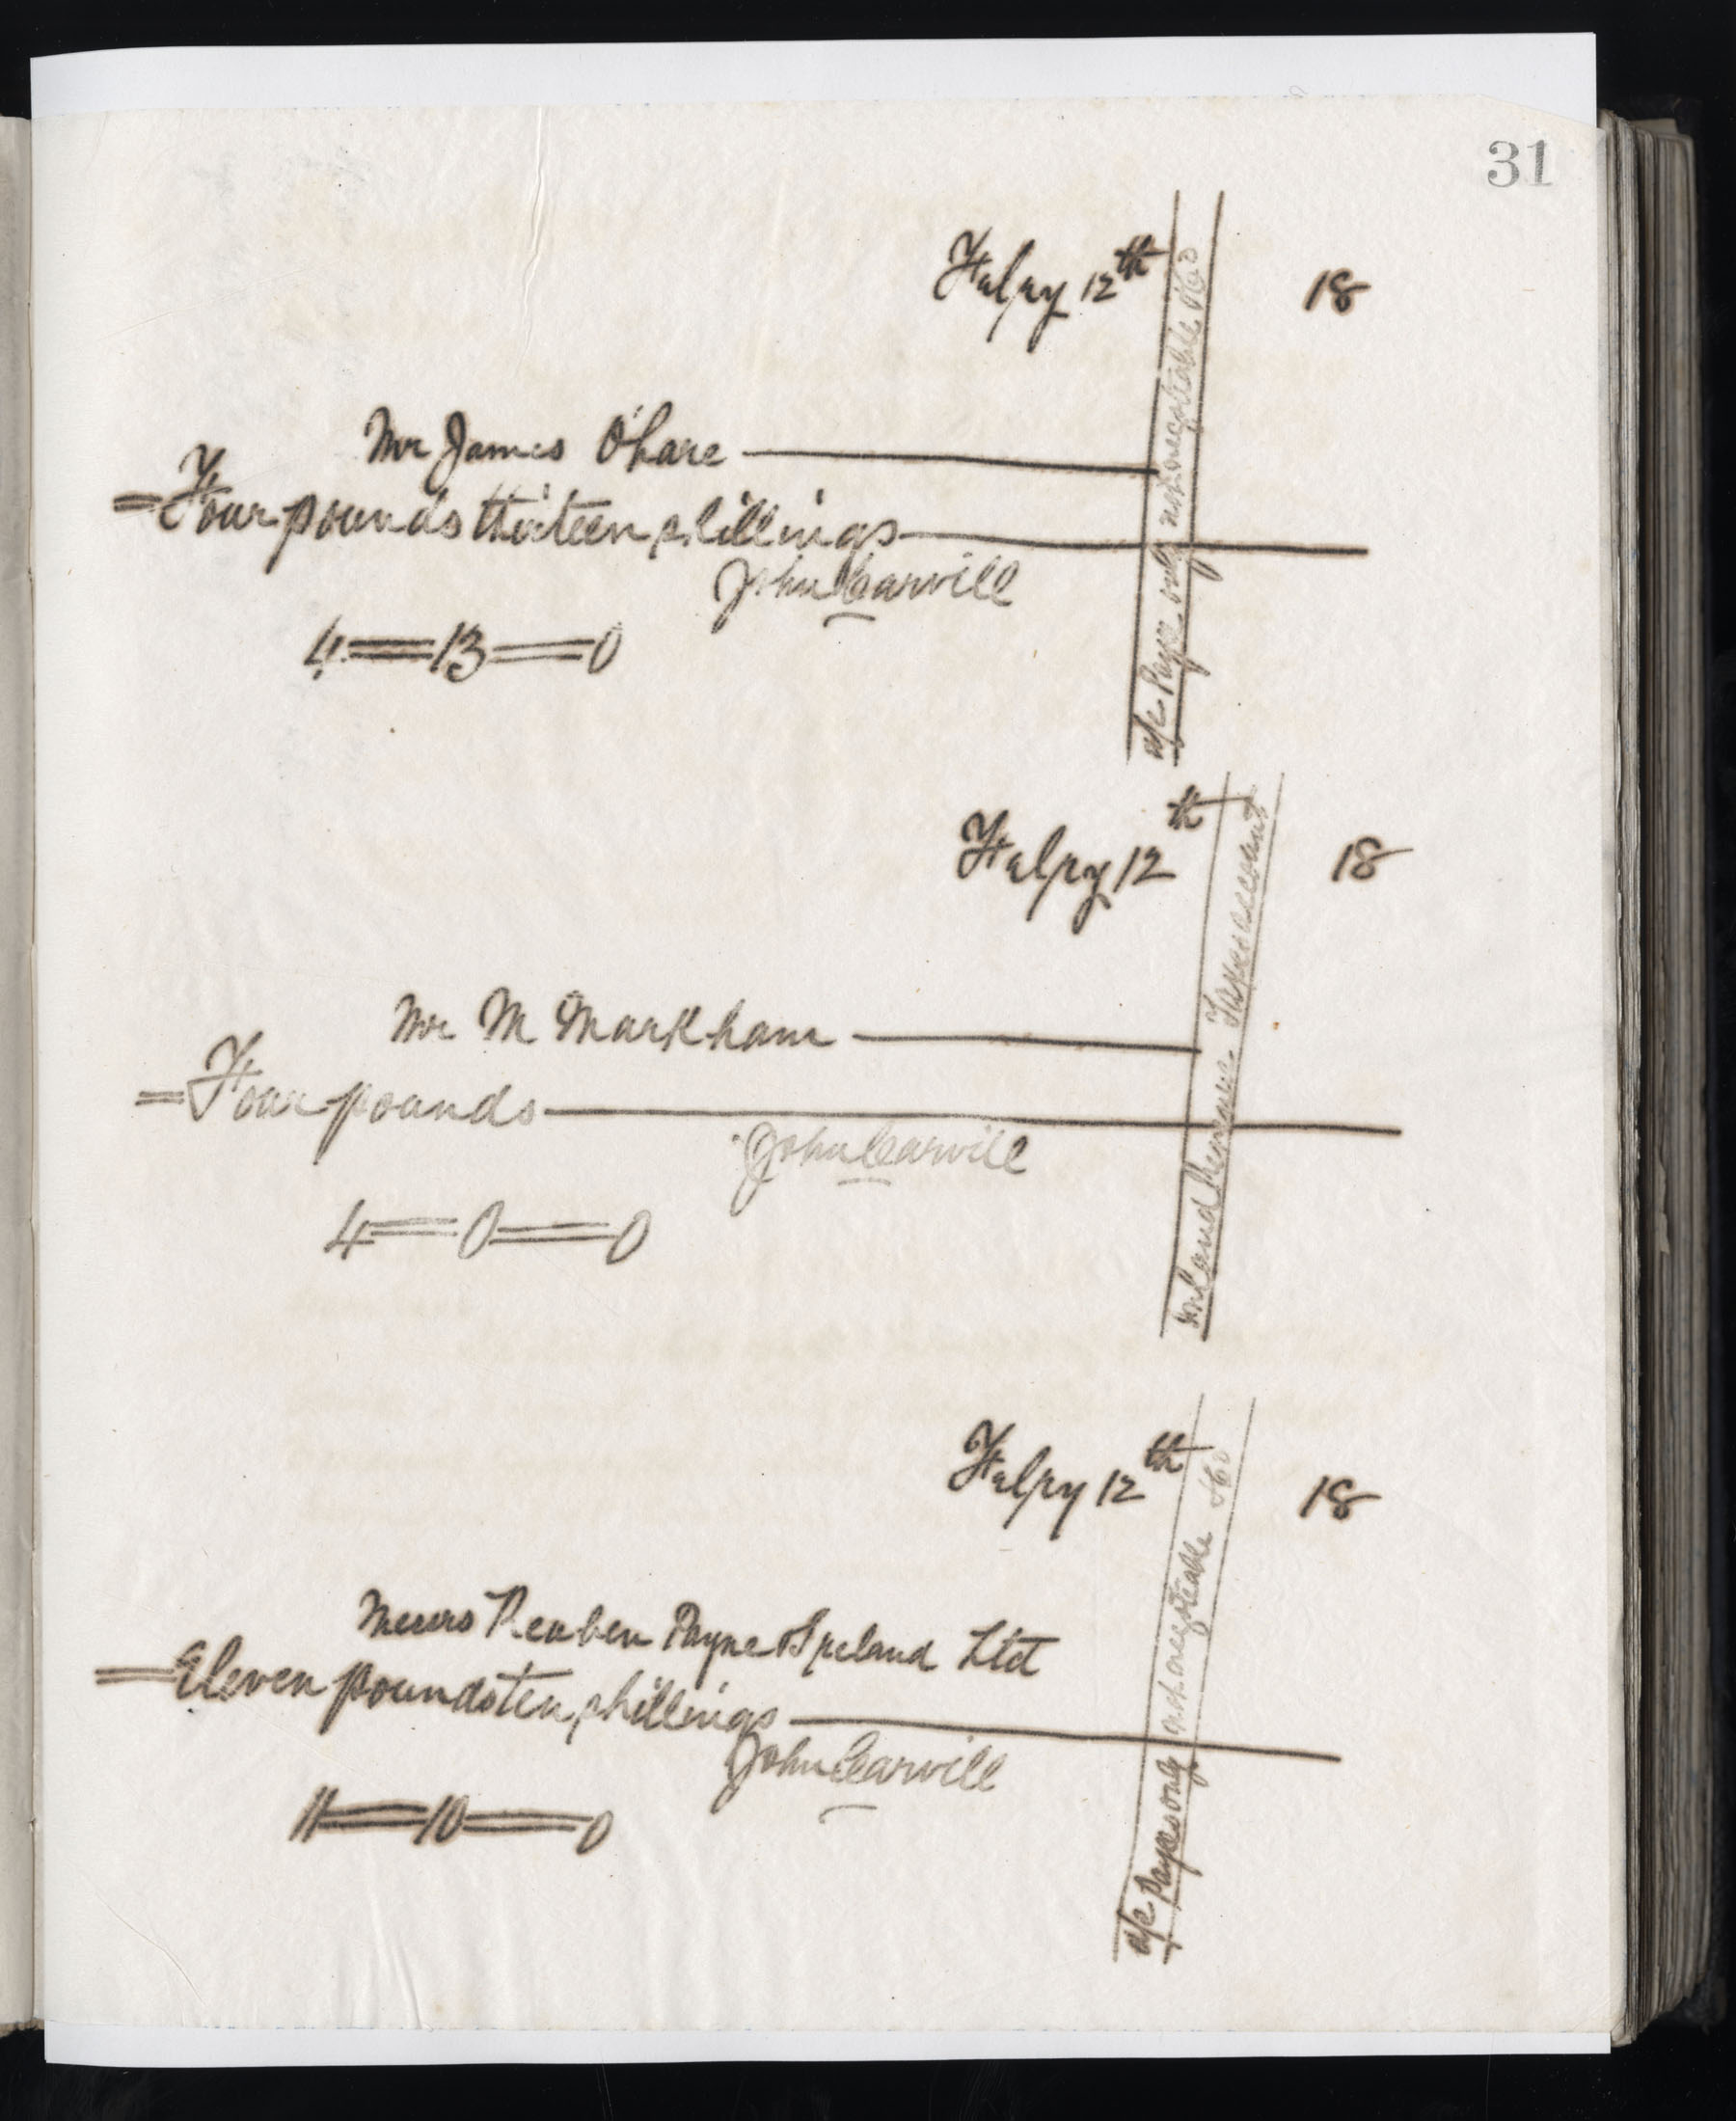 31
12th 18
a/c Payee only not negotiable
Mr James O'hare
=Four pounds thirteen shillings
John Carvill
4=13=0
12th 18
Inland Revenue Tax account
Mr M Markham
=Four pounds
John Carvill
4=0=0
12th 18
a/c Payees only not negotiable
Messrs Reuben Payne Ireland Ltd
=Eleven pounds ten shillings
John Carvill
11=10=0